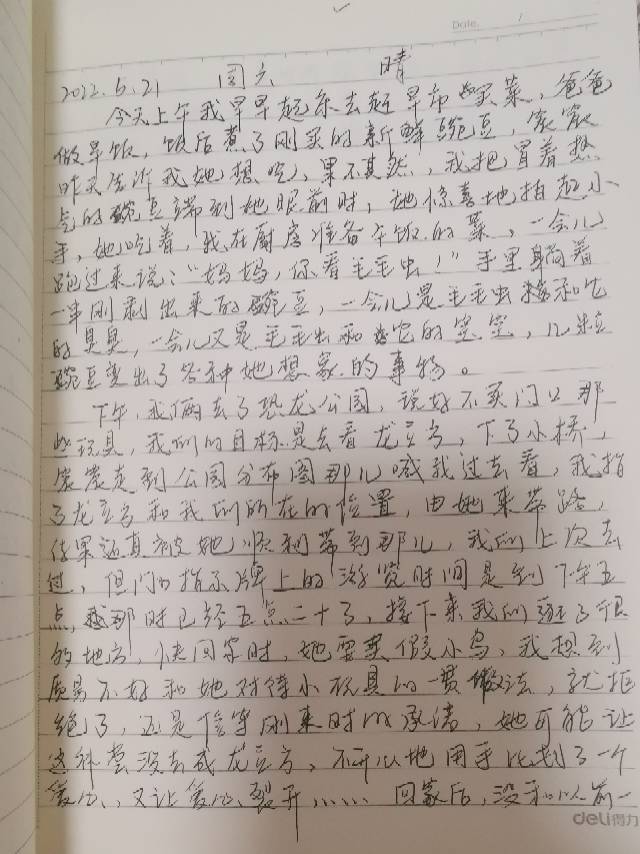 Date. /
2022.5.21 周六 晴
今天上午我早早起来去赶早市买菜，爸爸
做早饭，饭后煮了刚买的新鲜豌豆，宸宸
昨天告诉我她想吃，果不其然，我把冒着热
气的豌豆端到她眼前时，她惊喜地拍起小
手，她吃着，我在厨房准备午饭的菜，一会儿
跑过来说："妈妈，你看毛毛虫！"手里躺着
一串刚剥出来的豌豆，一会儿是毛毛虫和它
的臭臭，一会儿又是毛毛虫和它的宝宝，几粒
豌豆变出了各种她想象的事物。
下午，我俩去了恐龙公园，说好不买门口那
些玩具，我们的目标是去看龙立方，下了小桥，
宸宸走到公园分布图那儿喊我过去看，我指
了龙立方和我们所在的位置，由她来带路，
结果还真被她顺利带到那儿，我们上次去
过，但门口指示牌上的游览时间是到下午五
点，那时已经五点二十了，接下来我们逛了很
的地方，快回家时，她要买假小鸟，我想到
质量不好和她对待小玩具的一贯做法，就拒
绝了，还是信守刚来时的承诺，她可能
没去成龙立方，不开心地用手比划了一个
爱心，又让爱心裂开、、、、、回家后，没和以前一
deli得力